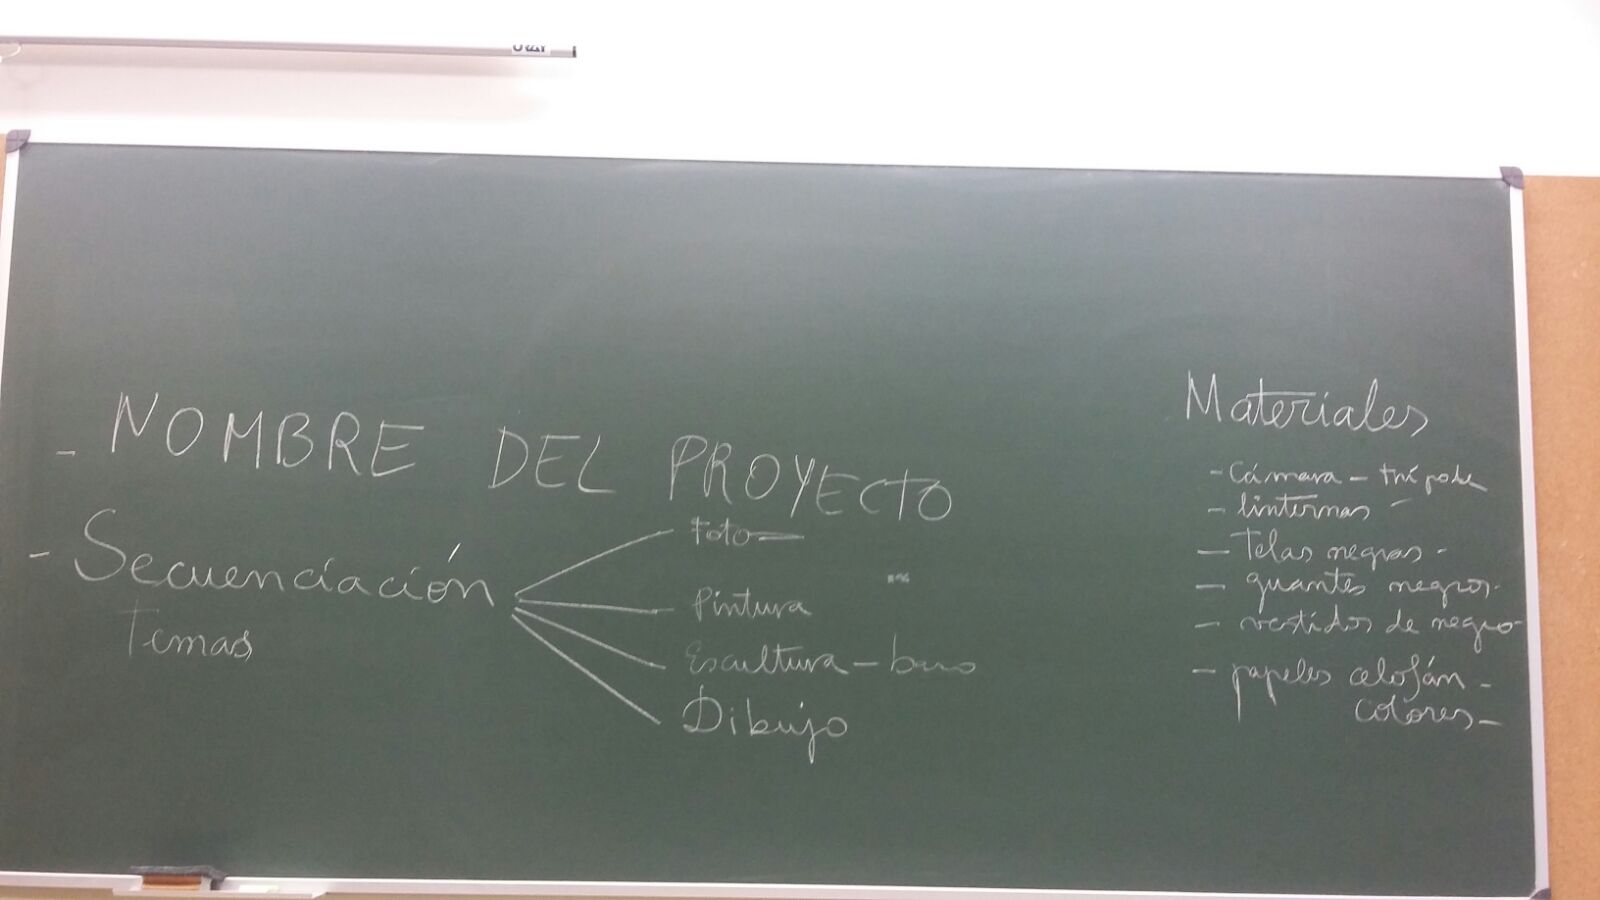 - NOMBRE DEL PROYECTO
- Secuenciación
Temas
Foto
Pintura
Escultura - barro
Dibujo
Materiales
- Cámara - trípode
- linternas -
- Telas negras -
- guantes negros -
- vestidos de negro -
- papeles celofán -
colores -